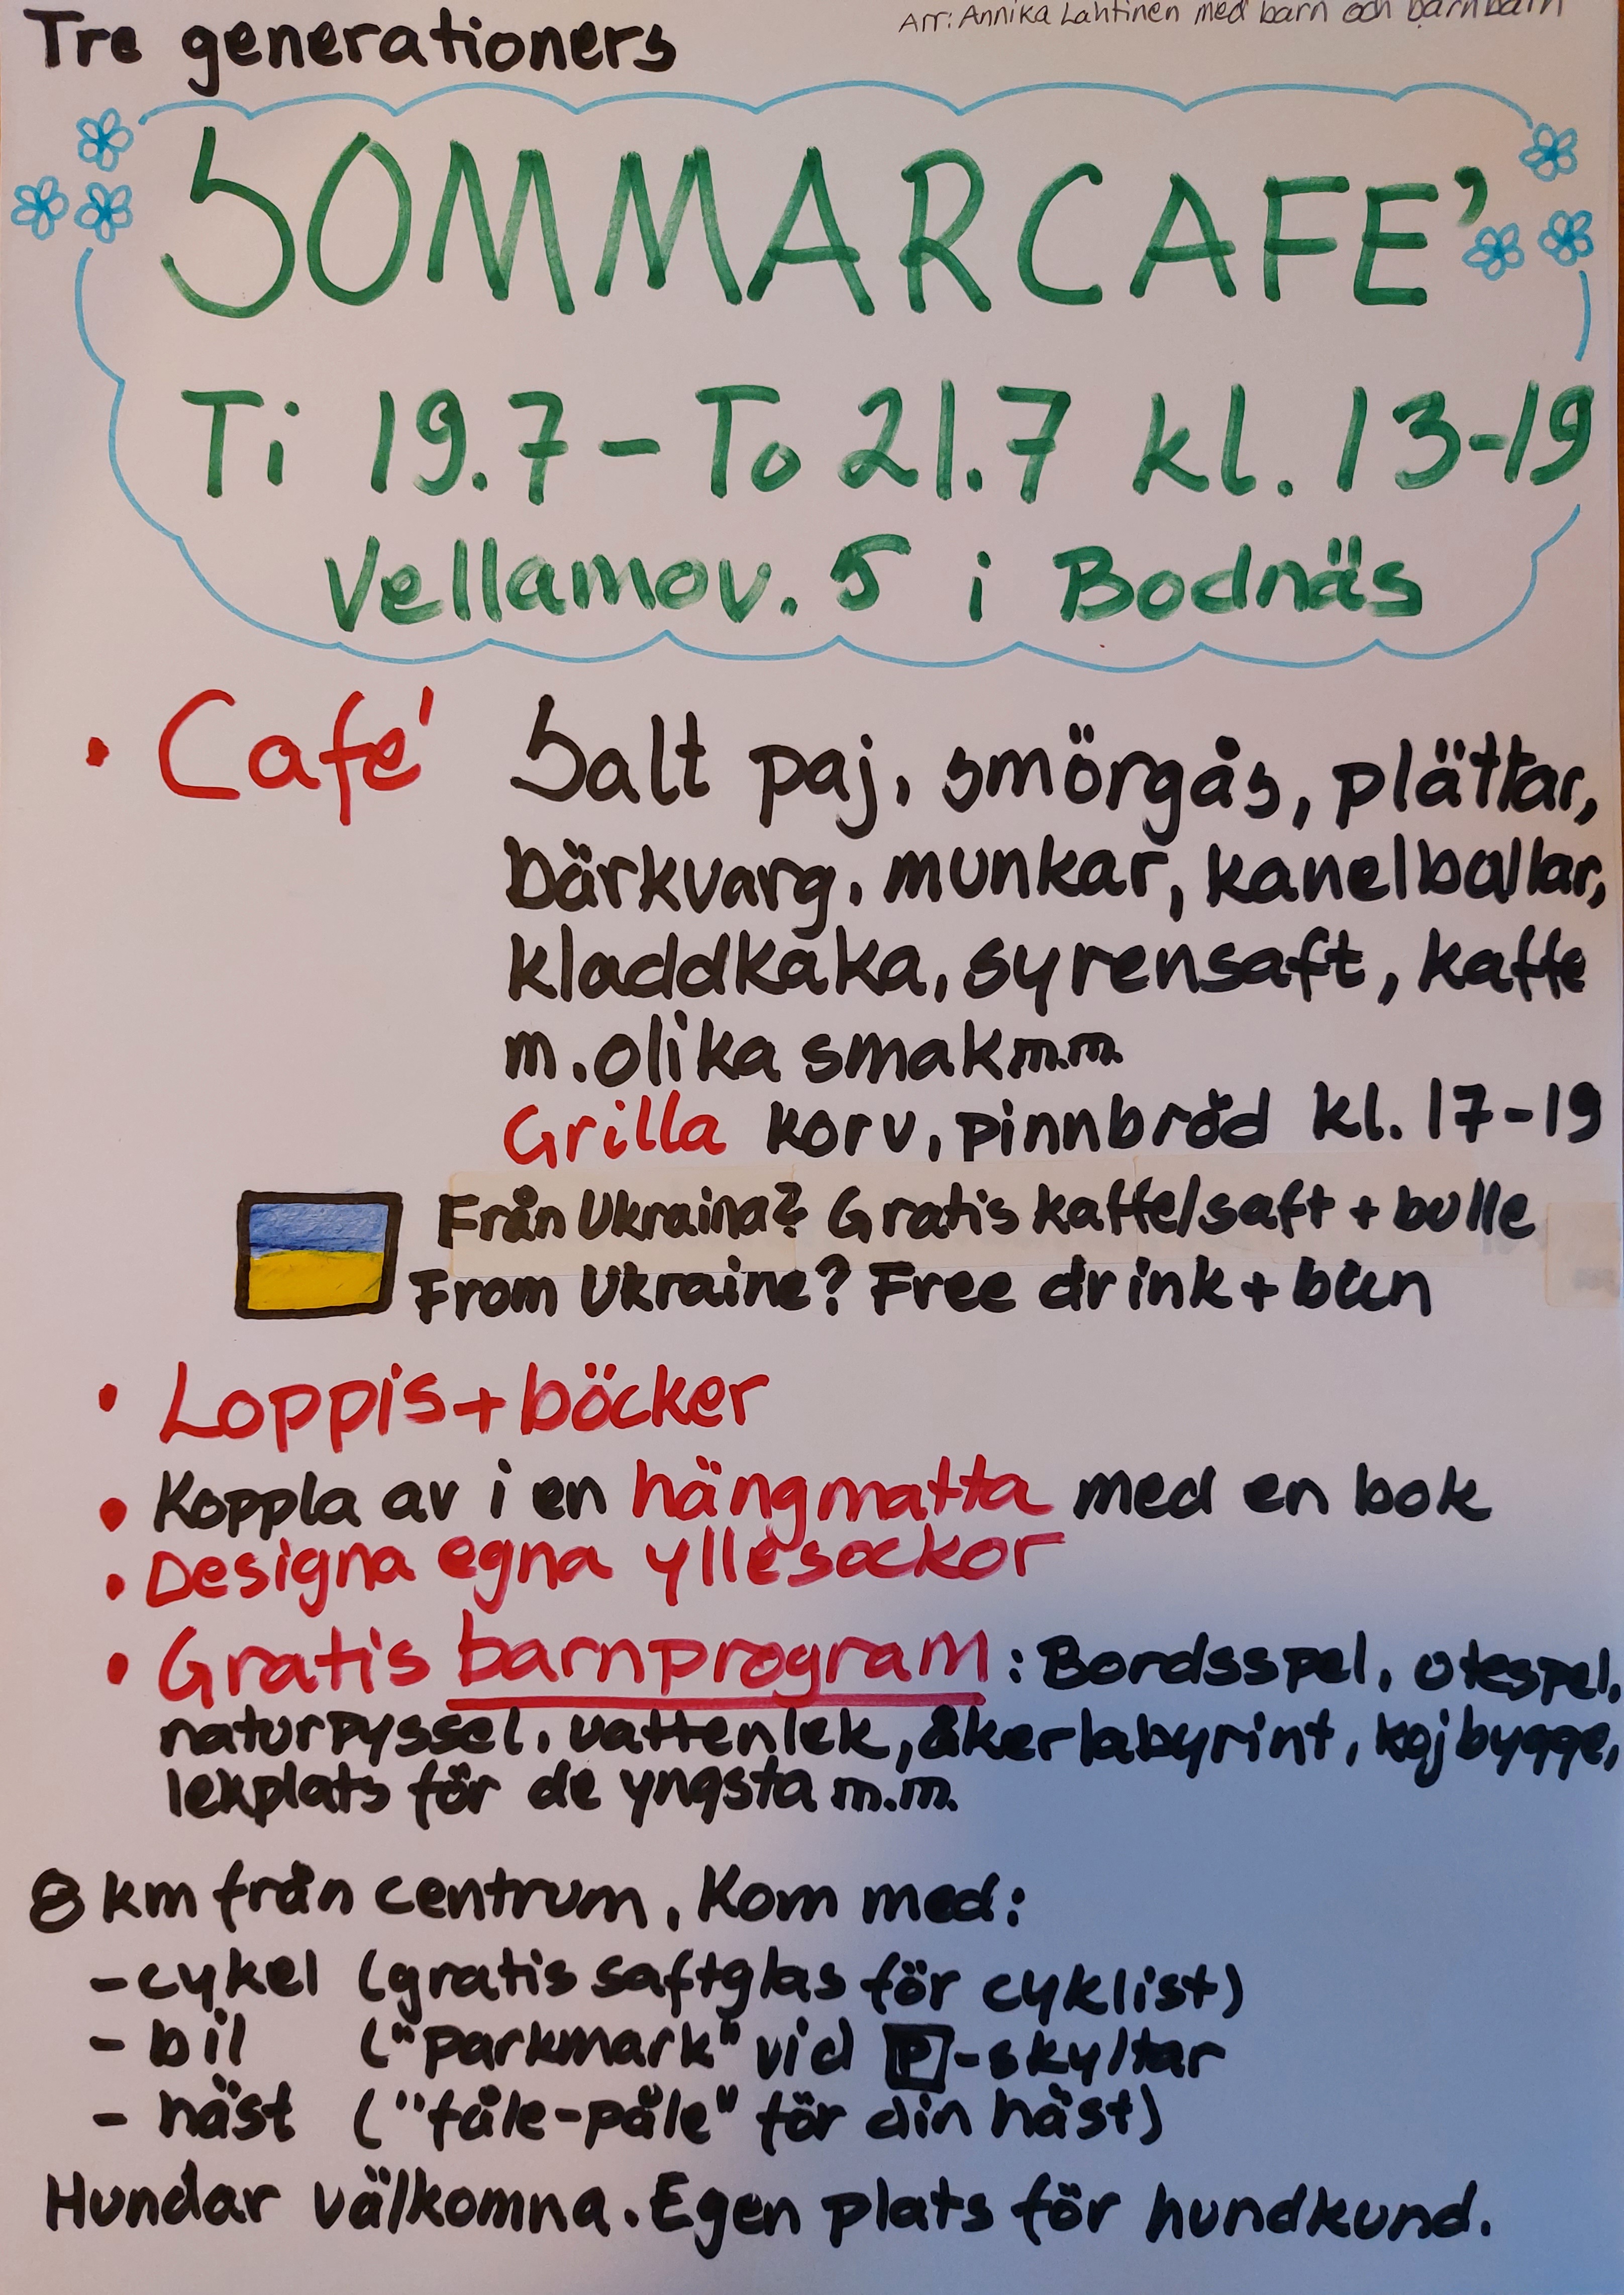 Tre generationers
Arr: Annika Lahtinen med barn och barnbarn
SOMMARCAFE'
Ti 19.7 - To 21.7 kl. 13-19
Vellamov. 5 i Bodnäs
• Café Salt paj, smörgås, plättar,
bärkvarg, munkar, kanelbullar,
kladdkaka, syrensaft, kaffe
m. olika smak m.m.
Grilla korv, pinnbröd kl. 17-19
Från Ukraina? Gratis kaffe/saft + bulle
From Ukraine? Free drink + bun
• Loppis + böcker
• Koppla av i en hängmatta med en bok
• Designa egna yllesockor
• Gratis barnprogram: Bordsspel, utespel,
naturpyssel, vattenlek, åkerlabyrint, kojbygge,
lekplats för de yngsta m.m.
8 km från centrum. Kom med:
- cykel (gratis saftglas för cyklist)
- bil ("parkmark" vid P-skyltar
- häst ("fåle-påle" för din häst)
Hundar välkomna. Egen plats för hundkund.